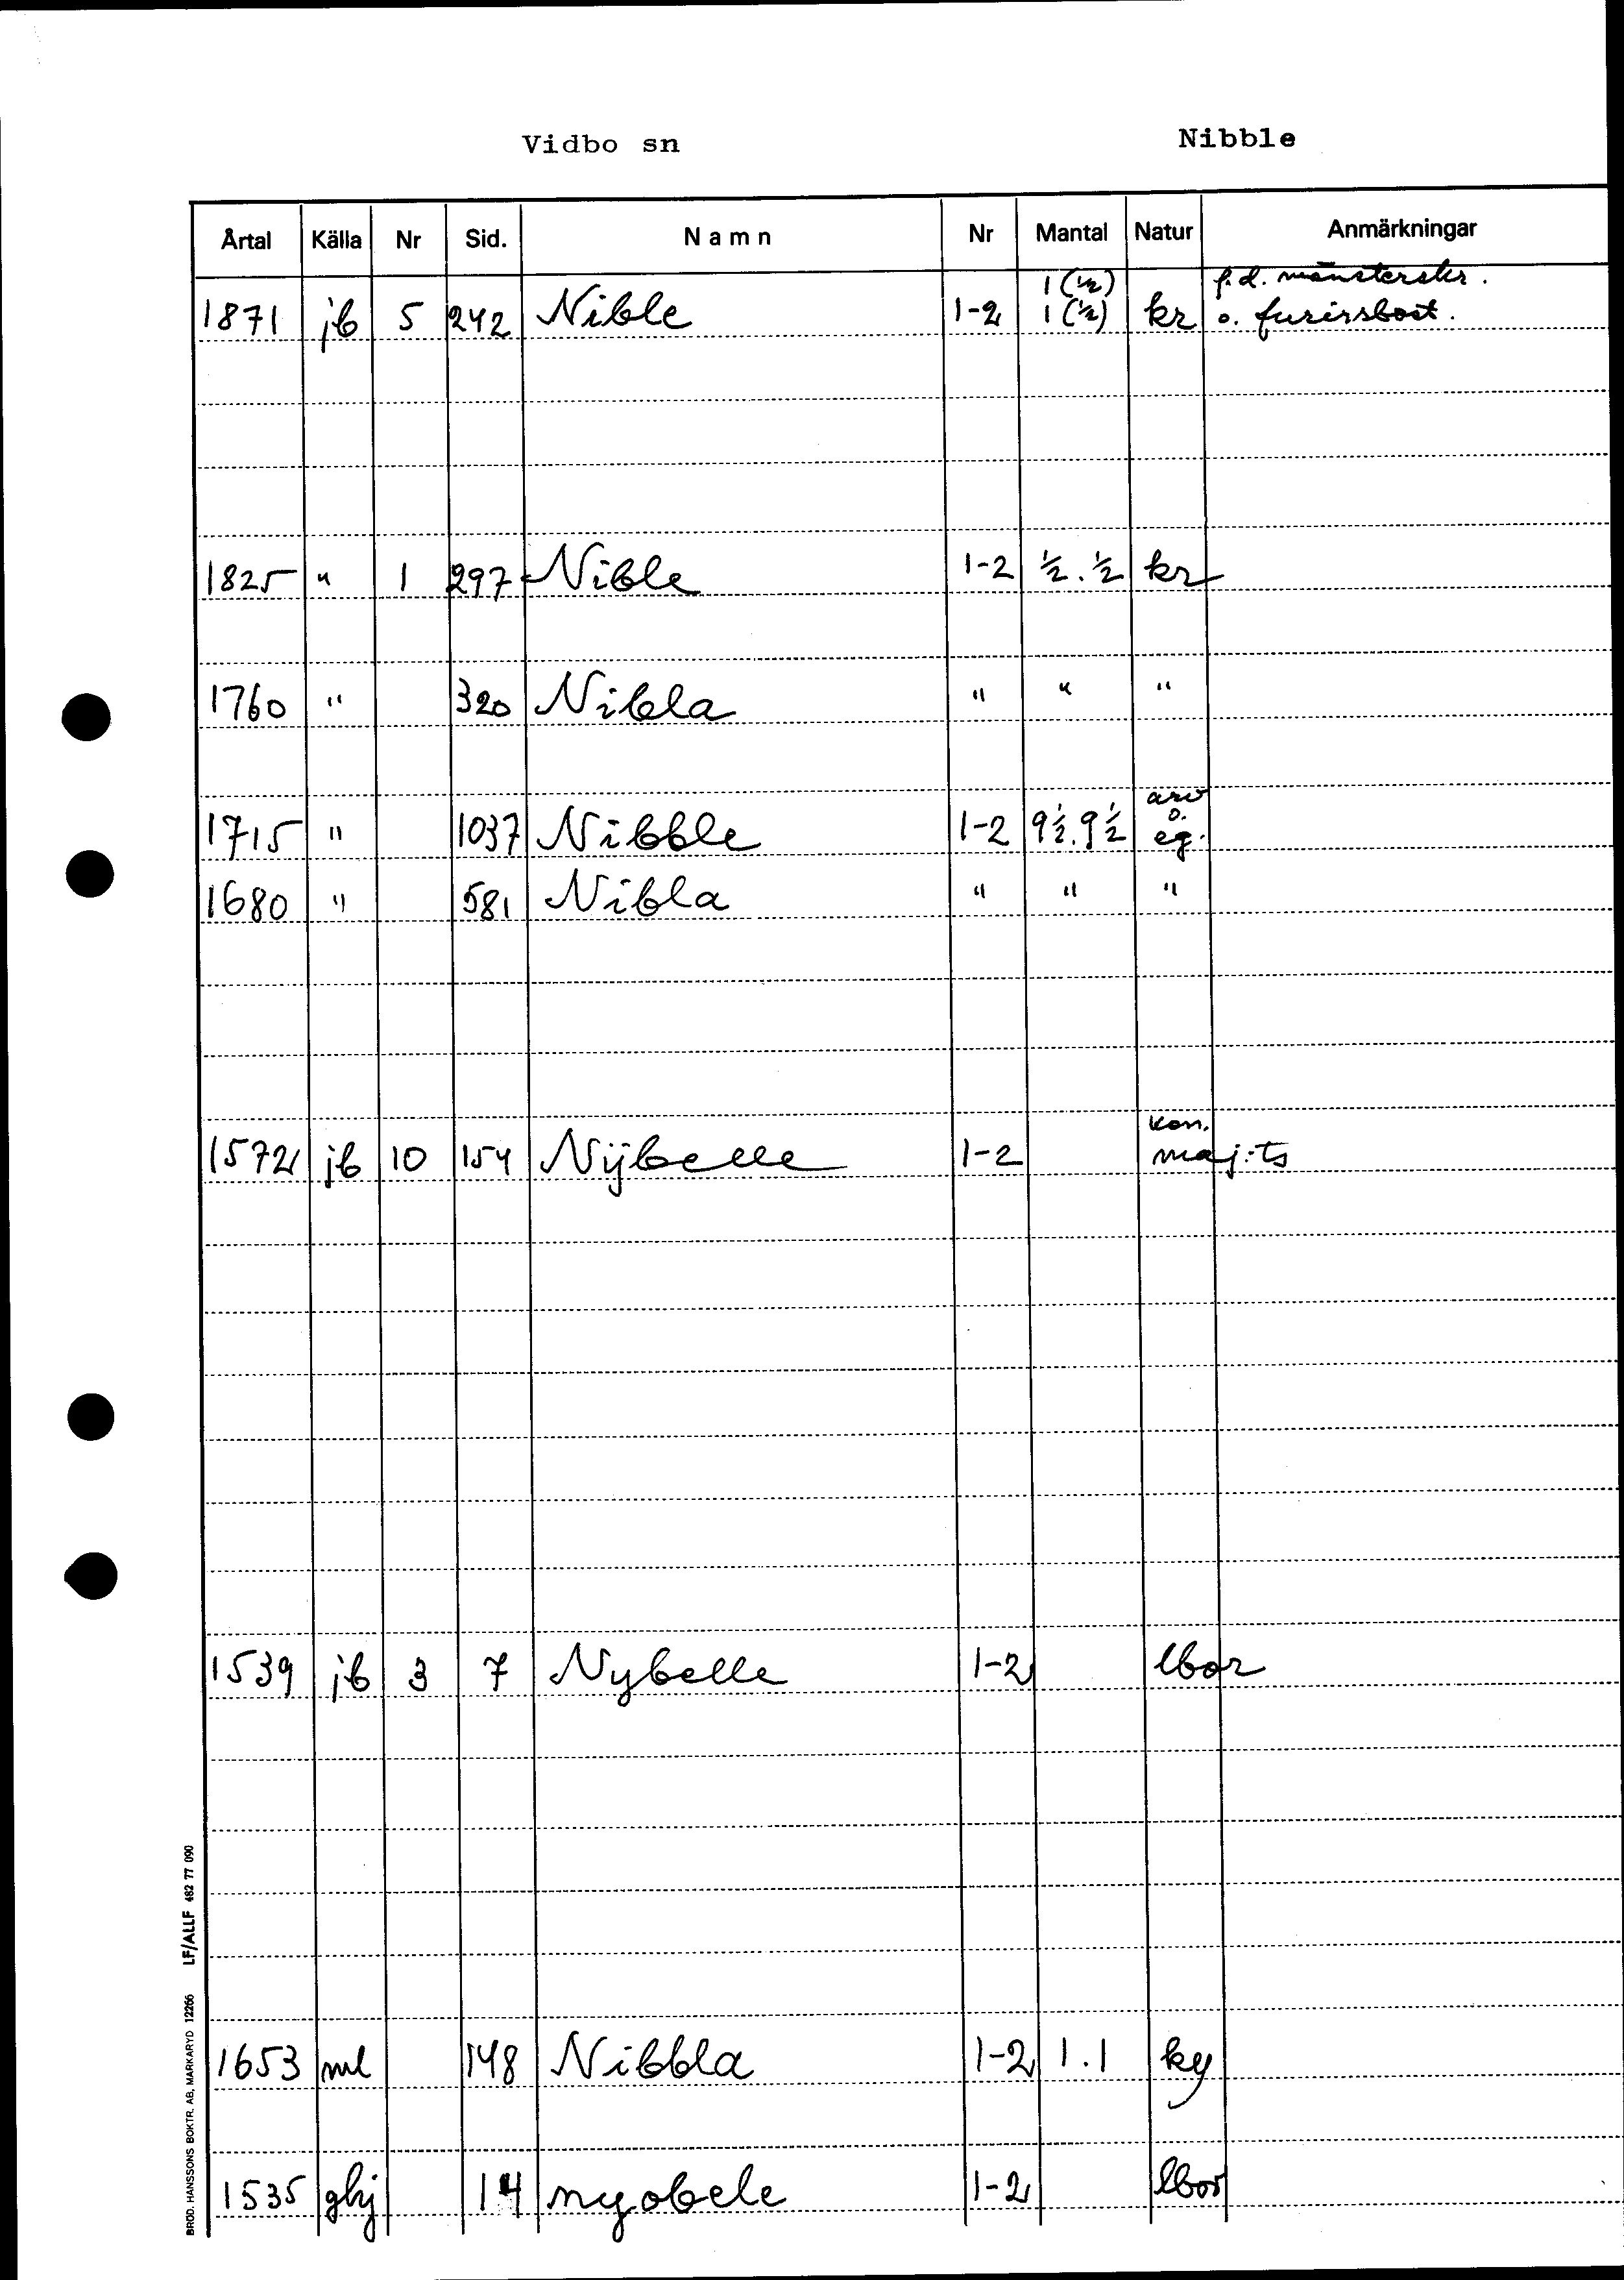 Vidbo sn Nibble
Årtal Källa Nr Sid. Namn Nr Mantal Natur Anmärkningar
1 (½) f.d. mönsterskr.
1871 jb 5 242 Nible 1-2 1 (½) kr o. furirsbost.
1825 " 1 297 Nible 1-2 ½.½ kr
1760 " 320 Nibla " " "
arv
o.
1715 " 1037 Nibble 1-2 9½.9½ eg.
1680 " 581 Nibla " " "
kon.
1572 jb 10 154 Nÿbelle 1-2 maj:ts
1539 jb 3 7 Nybelle 1-2 lbor
1653 ml 148 Nibbla 1-2 1.1 ky
1535 ghj 14 nyobele 1-2 lbor
BRÖD. HANSSONS BOKTR. AB, MARKARYD 12266 LF/ALLF 482 77 090